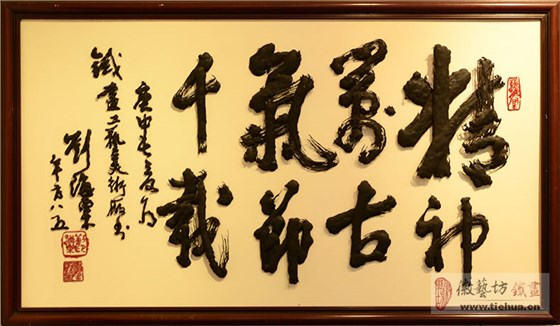 精神
萬古
氣節
千載
庚申
鐵畫工藝美術厰书
劉海粟
年方八五
徽藝坊 鐵畫
www.tiehua.cn